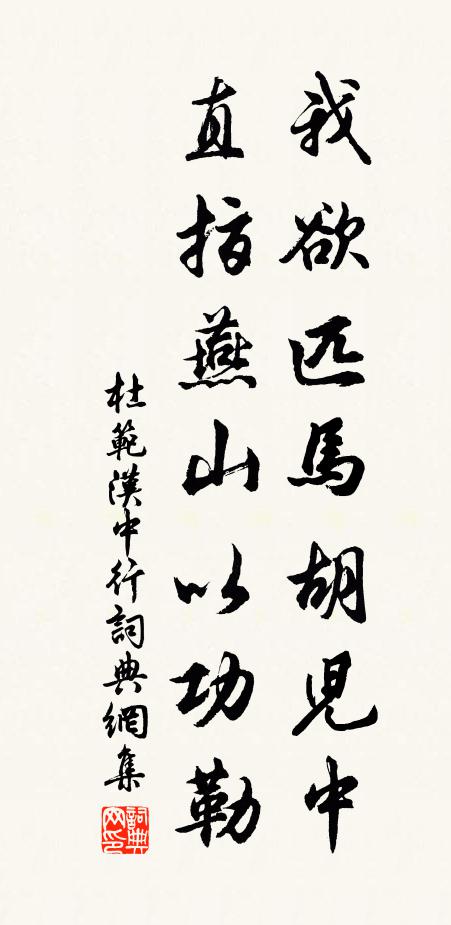 我欲匹馬胡児中
直指燕山以功勒
杜範漢中行詞典網集
詞典网印